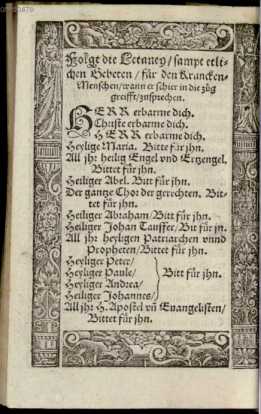 Folgt die Letaney / sampt etli-
chen Gebeten / für den Krancken-
Menschen / wann er schier in die züg
greifft / zusprechen.
HERR erbarme dich.
Christe erbarme dich.
HERR erbarme dich.
Heylige Maria. Bitte für jhn.
All jhr heilig Engel vnd Ertzengel.
Bittet für jhn.
Heiliger Abel. Bitt für jhn.
Der gantze Chor der gerechten. Bit-
tet für jhn.
Heiliger Abraham / Bitt für jhn.
Heiliger Johan Tauffer / Bit für jn.
All jhr heyligen Patriarchen vnnd
Propheten / Bittet für jhn.
Heyliger Peter /
Heyliger Paule /
Heyliger Andrea / Bitt für jhn.
Heiliger Johannes /
All jhr H. Apostel vñ Euangelisten /
Bittet für jhn.